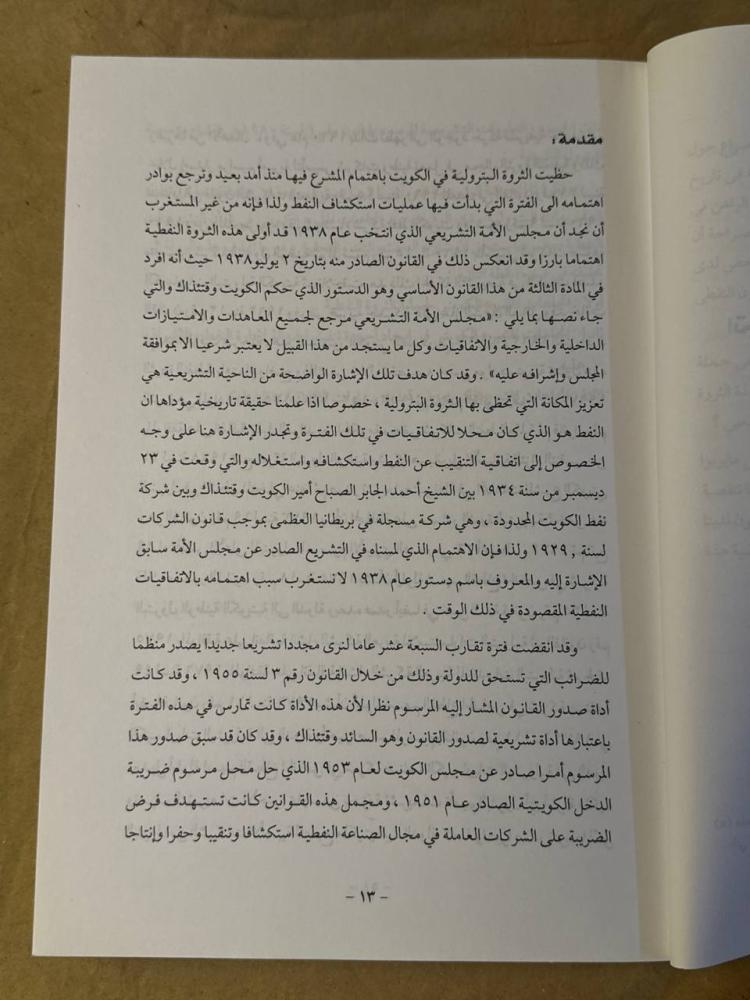 مقدمة :
حظيت الثروة البترولية في الكويت باهتمام المشرع فيها منذ أمد بعيد وترجع بوادر
اهتمامه الى الفترة التي بدأت فيها عمليات استكشاف النفط ولذا فإنه من غير المستغرب
أن نجد أن مجلس الأمة التشريعي الذي انتخب عام ١٩٣٨ قد أولى هذه الثروة النفطية
اهتماما بارزا وقد انعكس ذلك في القانون الصادر منه بتاريخ ٢ يوليو١٩٣٨ حيث أنه افرد
في المادة الثالثة من هذا القانون الأساسي وهو الدستور الذي حكم الكويت وقتئذاك والتي
جاء نصها بما يلي : «مجلس الأمة التشريعي مرجع لجميع المعاهدات والامتيازات
الداخلية والخارجية والاتفاقيات وكل ما يستجد من هذا القبيل لا يعتبر شرعيا الا بموافقة
المجلس وإشرافه عليه» . وقد كان هدف تلك الإشارة الواضحة من الناحية التشريعية هي
تعزيز المكانة التي تحظى بها الثروة البترولية ، خصوصا اذا علمنا حقيقة تاريخية مؤداها ان
النفط هو الذي كان محلا للاتفاقيات في تلك الفترة وتجدر الإشارة هنا على وجه
الخصوص إلى اتفاقية التنقيب عن النفط واستكشافه واستغلاله والتي وقعت في ٢٣
ديسمبر من سنة ١٩٣٤ بين الشيخ أحمد الجابر الصباح أمير الكويت وقتئذاك وبين شركة
نفط الكويت المحدودة ، وهي شركة مسجلة في بريطانيا العظمى بموجب قانون الشركات
لسنة , ١٩٢٩ ولذا فإن الاهتمام الذي لمسناه في التشريع الصادر عن مجلس الأمة سابق
الإشارة إليه والمعروف باسم دستور عام ١٩٣٨ لا نستغرب سبب اهتمامه بالاتفاقيات
النفطية المقصودة في ذلك الوقت .
وقد انقضت فترة تقارب السبعة عشر عاما لنرى مجددا تشريعا جديدا يصدر منظما
للضرائب التي تستحق للدولة وذلك من خلال القانون رقم ٣ لسنة ١٩٥٥ ، وقد كانت
أداة صدور القانون المشار إليه المرسوم نظرا لأن هذه الأداة كانت تمارس في هذه الفترة
باعتبارها أداة تشريعية لصدور القانون وهو السائد وقتئذاك ، وقد كان قد سبق صدور هذا
المرسوم أمرا صادر عن مجلس الكويت لعام ١٩٥٣ الذي حل محل مرسوم ضريبة
الدخل الكويتية الصادر عام ١٩٥١ ، ومجمل هذه القوانين كانت تستهدف فرض
الضريبة على الشركات العاملة في مجال الصناعة النفطية استكشافا وتنقيبا وحفرا وإنتاجا
- ١٣ -